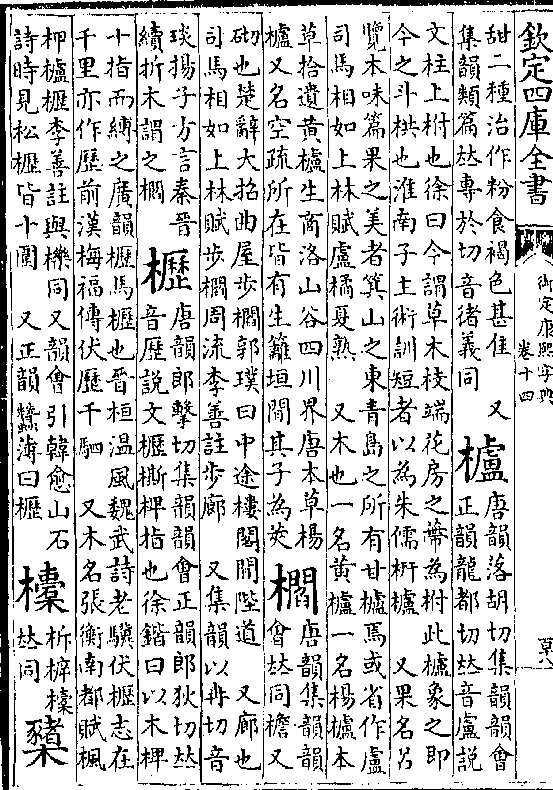 欽定四庫全書
御定康熙字典
卷十四
甜二種治作粉食褐色甚佳 又
集韻類篇𠀤專於切音諸義同
櫨
唐韻落胡切集韻韻會
正韻龍都切𠀤音盧說
文柱上柎也徐曰今謂草木枝端花房之蔕為柎此櫨象之即
今之斗栱也淮南子主術訓短者以為朱儒枅櫨 又果名呂
覽本味篇果之美者箕山之東青島之所有甘櫨焉或省作盧
司馬相如上林賦盧橘夏熟 又木也一名黃櫨一名楊櫨本
草拾遺黃櫨生商洛山谷四川界唐本草楊
櫨又名空疏所在皆有生籬垣間其子為莢
櫩
唐韻集韻韻
會𠀤同檐又
砌也楚辭大招曲屋步櫩郭璞曰中途樓閣間陛道 又廊也
司馬相如上林賦步櫩周流李善註步廊 又集韻以冉切音
琰揚子方言秦晉
續折木謂之櫩
櫪
唐韻郎擊切集韻韻會正韻郎狄切𠀤
音歷說文櫪㯕椑指也徐鍇曰以木椑
十指而縛之廣韻櫪馬櫪也晉桓溫風魏武詩老驥伏櫪志在
千里亦作歷前漢梅福傳伏歷千駟 又木名張衡南都賦楓
柙櫨櫪李善註與櫟同又韻會引韓愈山石
詩時見松櫪皆十圍 又正韻蠶簿曰櫪
𠀤同
櫫